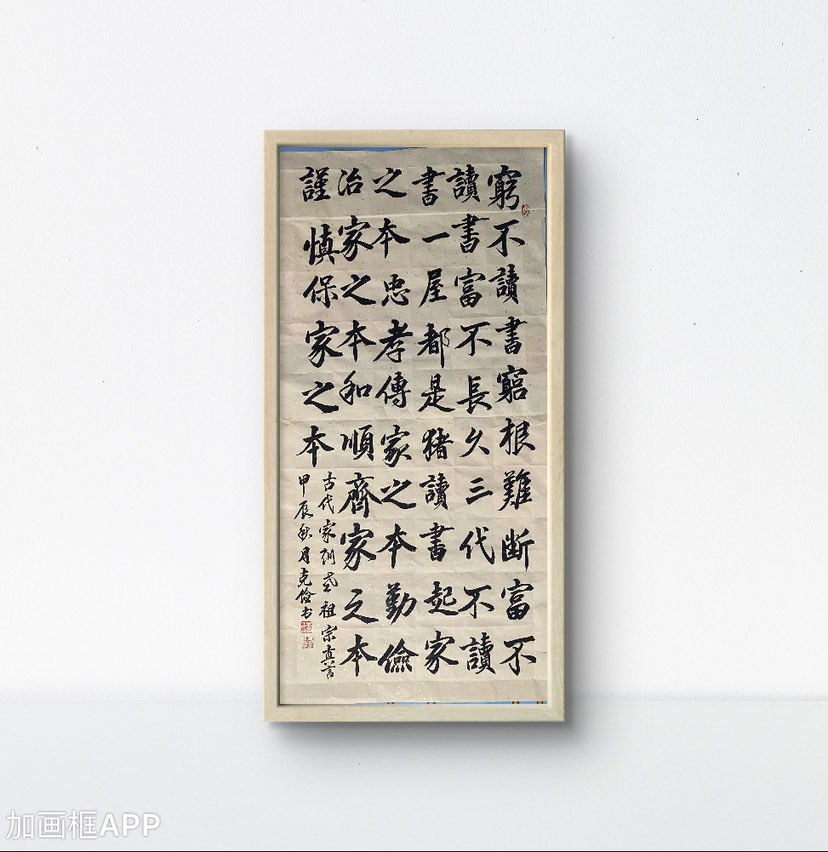 窮不讀書窮根難断富不
讀書富不長久三代不讀
書一屋都是猪讀書起家
之本忠孝傳家之本勤儉
治家之本和順齊家之本
謹慎保家之本
古代家训老祖宗真言
甲辰秋月克儉书
加画框APP